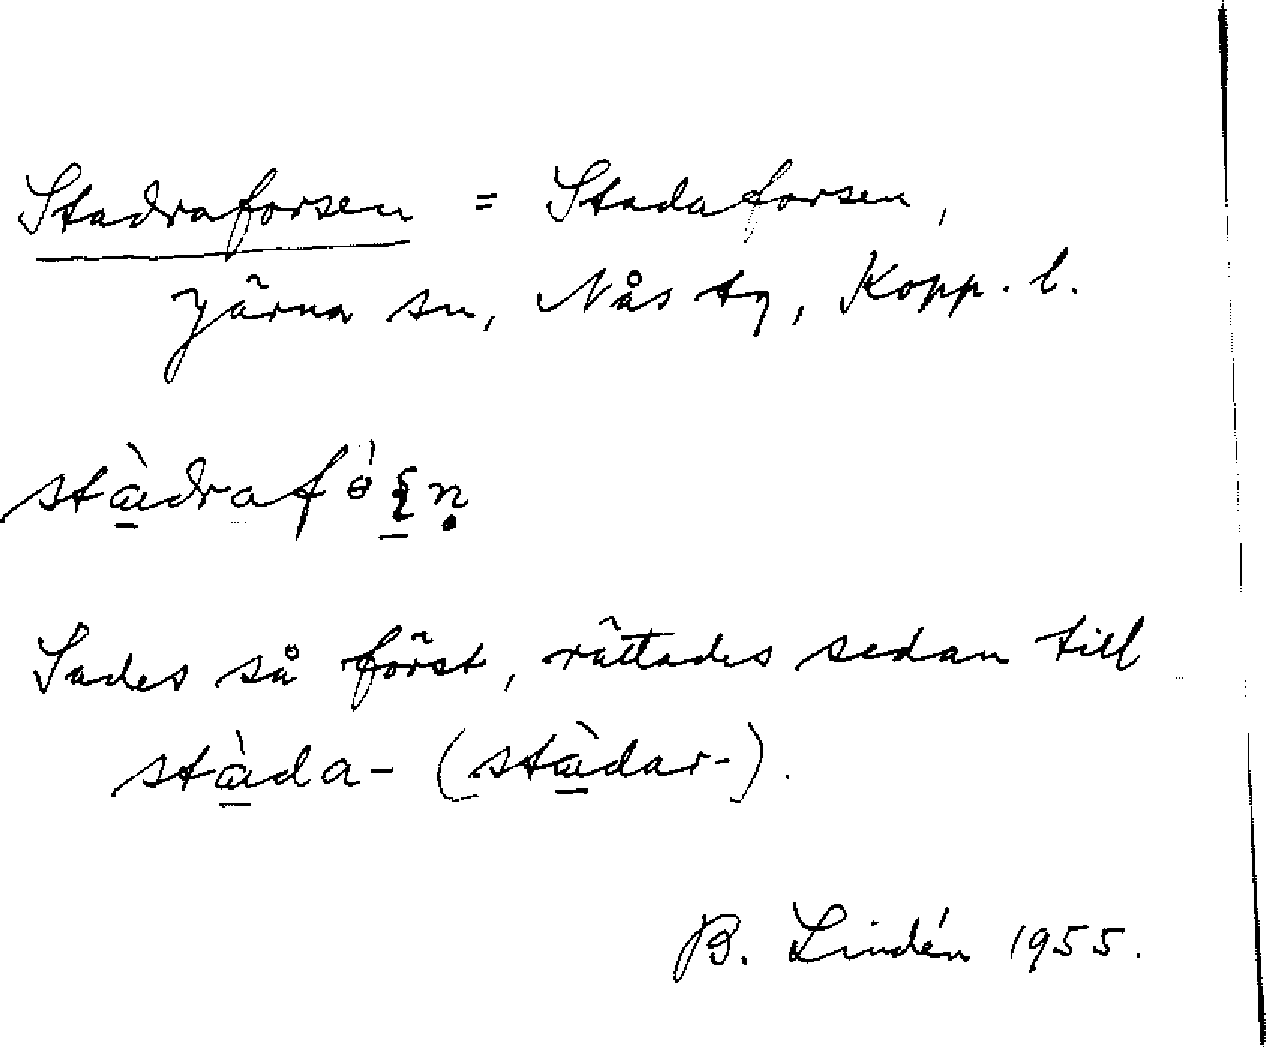 Stadraforsen = Stadaforsen,
Järna sn, Nås tg, Kopp. l.
stàdrafò
Sades så först, rättades sedan till
stàda- (stàdar-).
B. Lindén 1955.